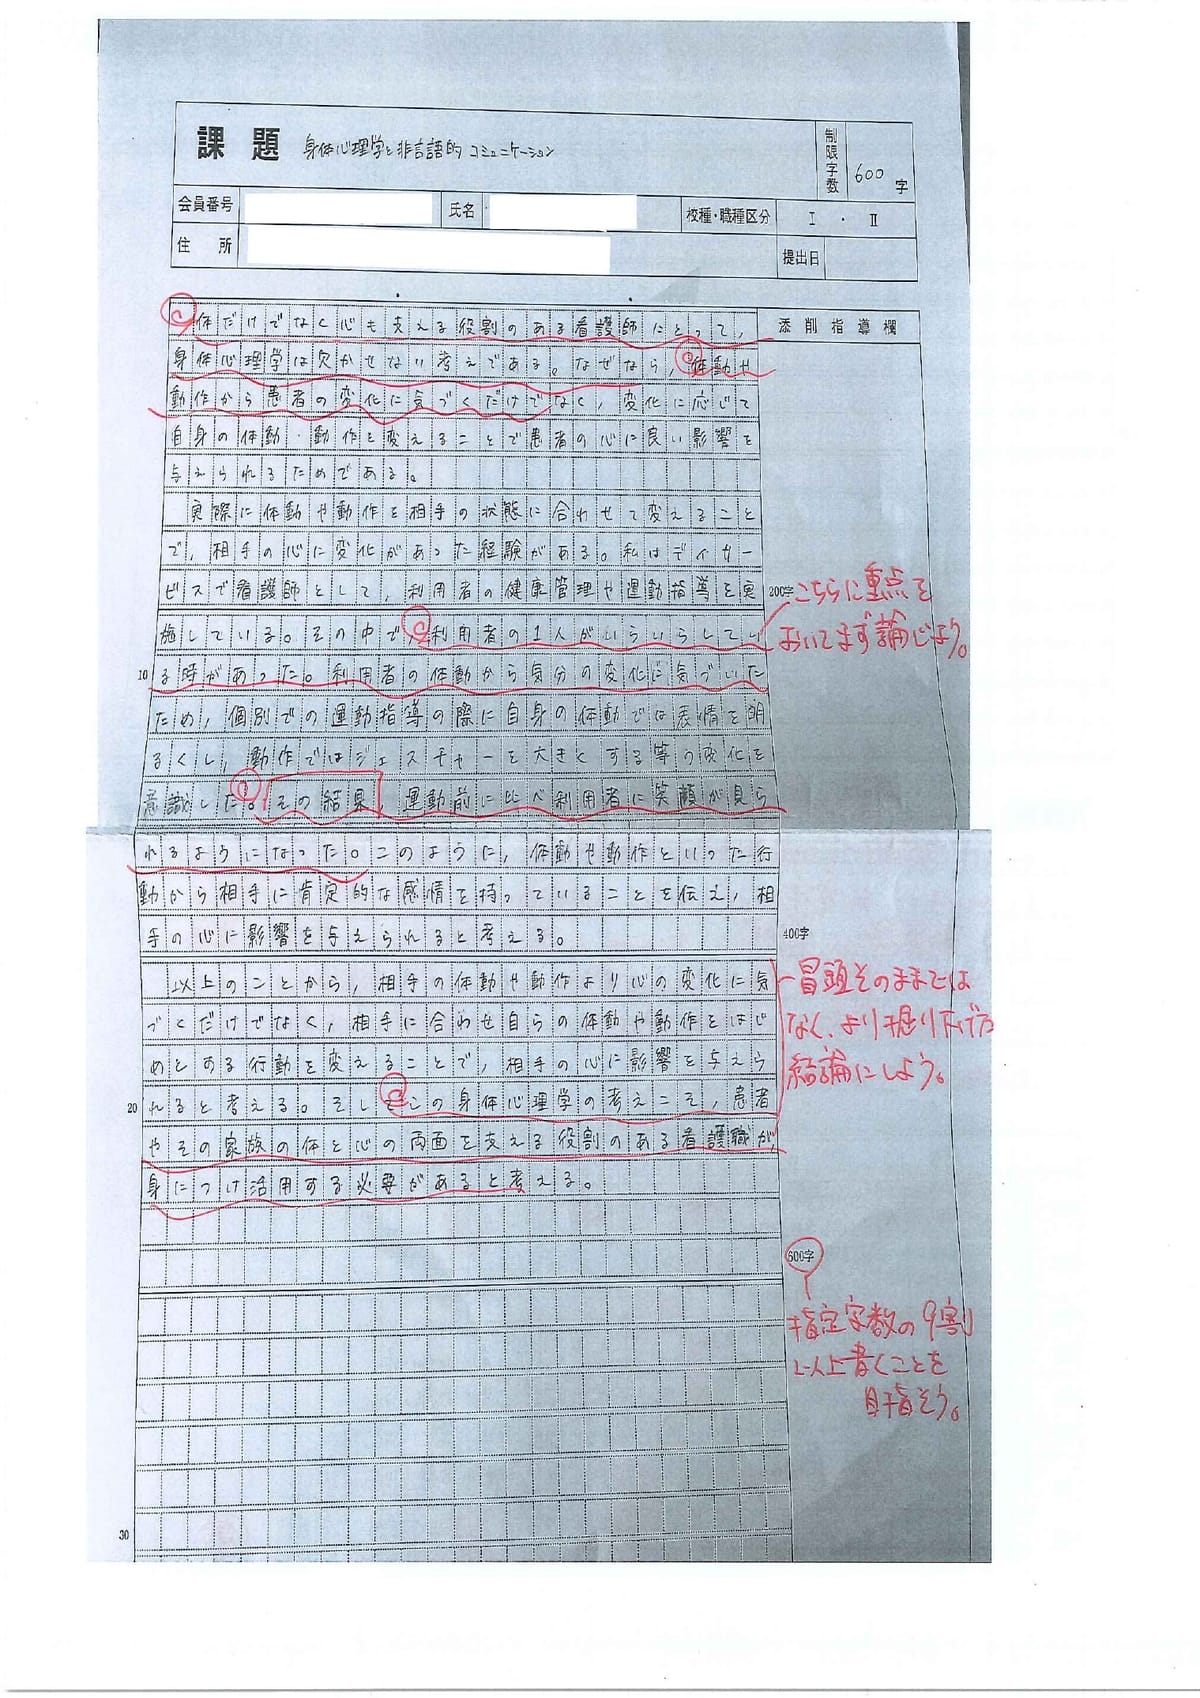 課題 身体心理学と非言語的コミュニケーション
制限字数 600字
会員番号 氏名 校種・職種区分 Ⅰ・Ⅱ
住所 提出日
添削指導欄
体だけでなく心も支える役割のある看護師にとって,
身体心理学は欠かせない考えである。なぜなら,体動や
動作から患者の変化に気づくだけでなく,変化に応じて
自身の体動・動作を変えることで患者の心に良い影響を
与えられるためである。
実際に体動や動作を相手の状態に合わせて変えること
で,相手の心に変化があった経験がある。私はデイサー
ビスで看護師として,利用者の健康管理や運動指導を実
200字
施している。その中で,利用者の1人がいらいらしてい
10
る時があった。利用者の体動から気分の変化に気づいた
ため,個別での運動指導の際に自身の体動では表情を明
るくし,動作ではジェスチャーを大きくする等の変化を
意識した。その結果,運動前に比べ利用者に笑顔が見ら
れるようになった。このように,体動や動作といった行
動から相手に肯定的な感情を持っていることを伝え,相
手の心に影響を与えられると考える。
400字
以上のことから,相手の体動や動作より心の変化に気
づくだけでなく,相手に合わせ自らの体動や動作をはじ
めとある行動を変えることで,相手の心に影響を与えら
20
れると考える。そしてこの身体心理学の考えこそ,患者
やその家族の体と心の両面を支える役割のある看護職が,
身につけ活用する必要があると考える。
600字
30
こちらに重点を
おいてまず論じよう。
冒頭そのままではない
なく、より掘り下げた
結論にしよう。
指定字数の9割
以上書くことを
目指そう。